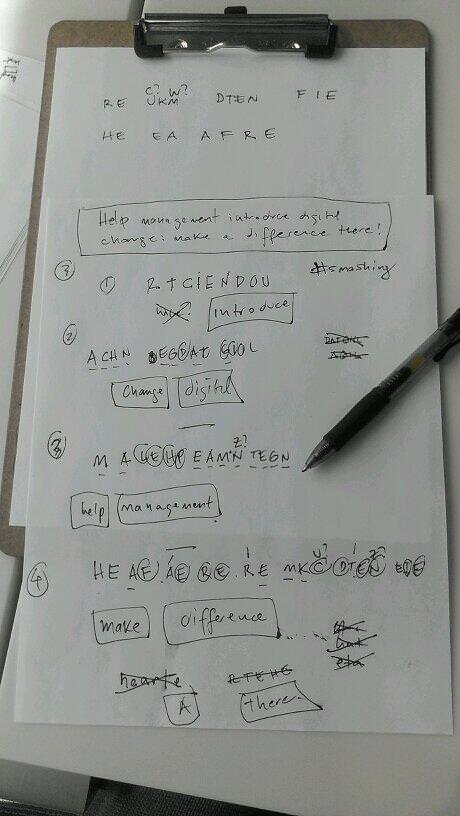 C? W?
RE UKM DTEN FIE
HE EA AFRE
Help management introduce digital
change: make a difference there!
#smashing
① RTCIENDOU
introduce
②
ACHN EGDAT GIOL
change digital
Z?
③ MALEHP EAMN TEGN
help management
U? I Z?
④ HEAF AE RE. RE MKC DTEN EIE
make difference
haarte RTEHE
A there.